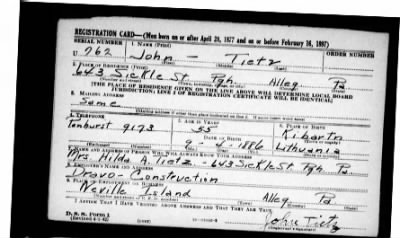 REGISTRATION CARD—(Men born on or after April 28, 1877 and on or before February 16, 1897)
SERIAL NUMBER 1. NAME (Print) ORDER NUMBER
U 762 John — Tietz
2. PLACE OF RESIDENCE (Print)
643 Sickle St. Pgh. Alleg Pa
[THE PLACE OF RESIDENCE GIVEN ON THE LINE ABOVE WILL DETERMINE LOCAL BOARD
JURISDICTION; LINE 2 OF REGISTRATION CERTIFICATE WILL BE IDENTICAL]
3. MAILING ADDRESS
Same
4. TELEPHONE 5. AGE IN YEARS 6. PLACE OF BIRTH
Penhurst 9173 55 Kibartn
DATE OF BIRTH
4 1886 Lithuania
7. NAME AND ADDRESS OF PERSON WHO WILL ALWAYS KNOW YOUR ADDRESS
Mrs. Hilda A. Tietz - 643 Sickle St. Pgh. Pa.
8. EMPLOYER'S NAME AND ADDRESS
Dravo - Construction
9. PLACE OF EMPLOYMENT OR BUSINESS
Neville Island Alleg Pa
I AFFIRM THAT I HAVE VERIFIED ABOVE ANSWERS AND THAT THEY ARE TRUE.
D. S. S. Form 1
(Revised 4-1-42) John Tietz